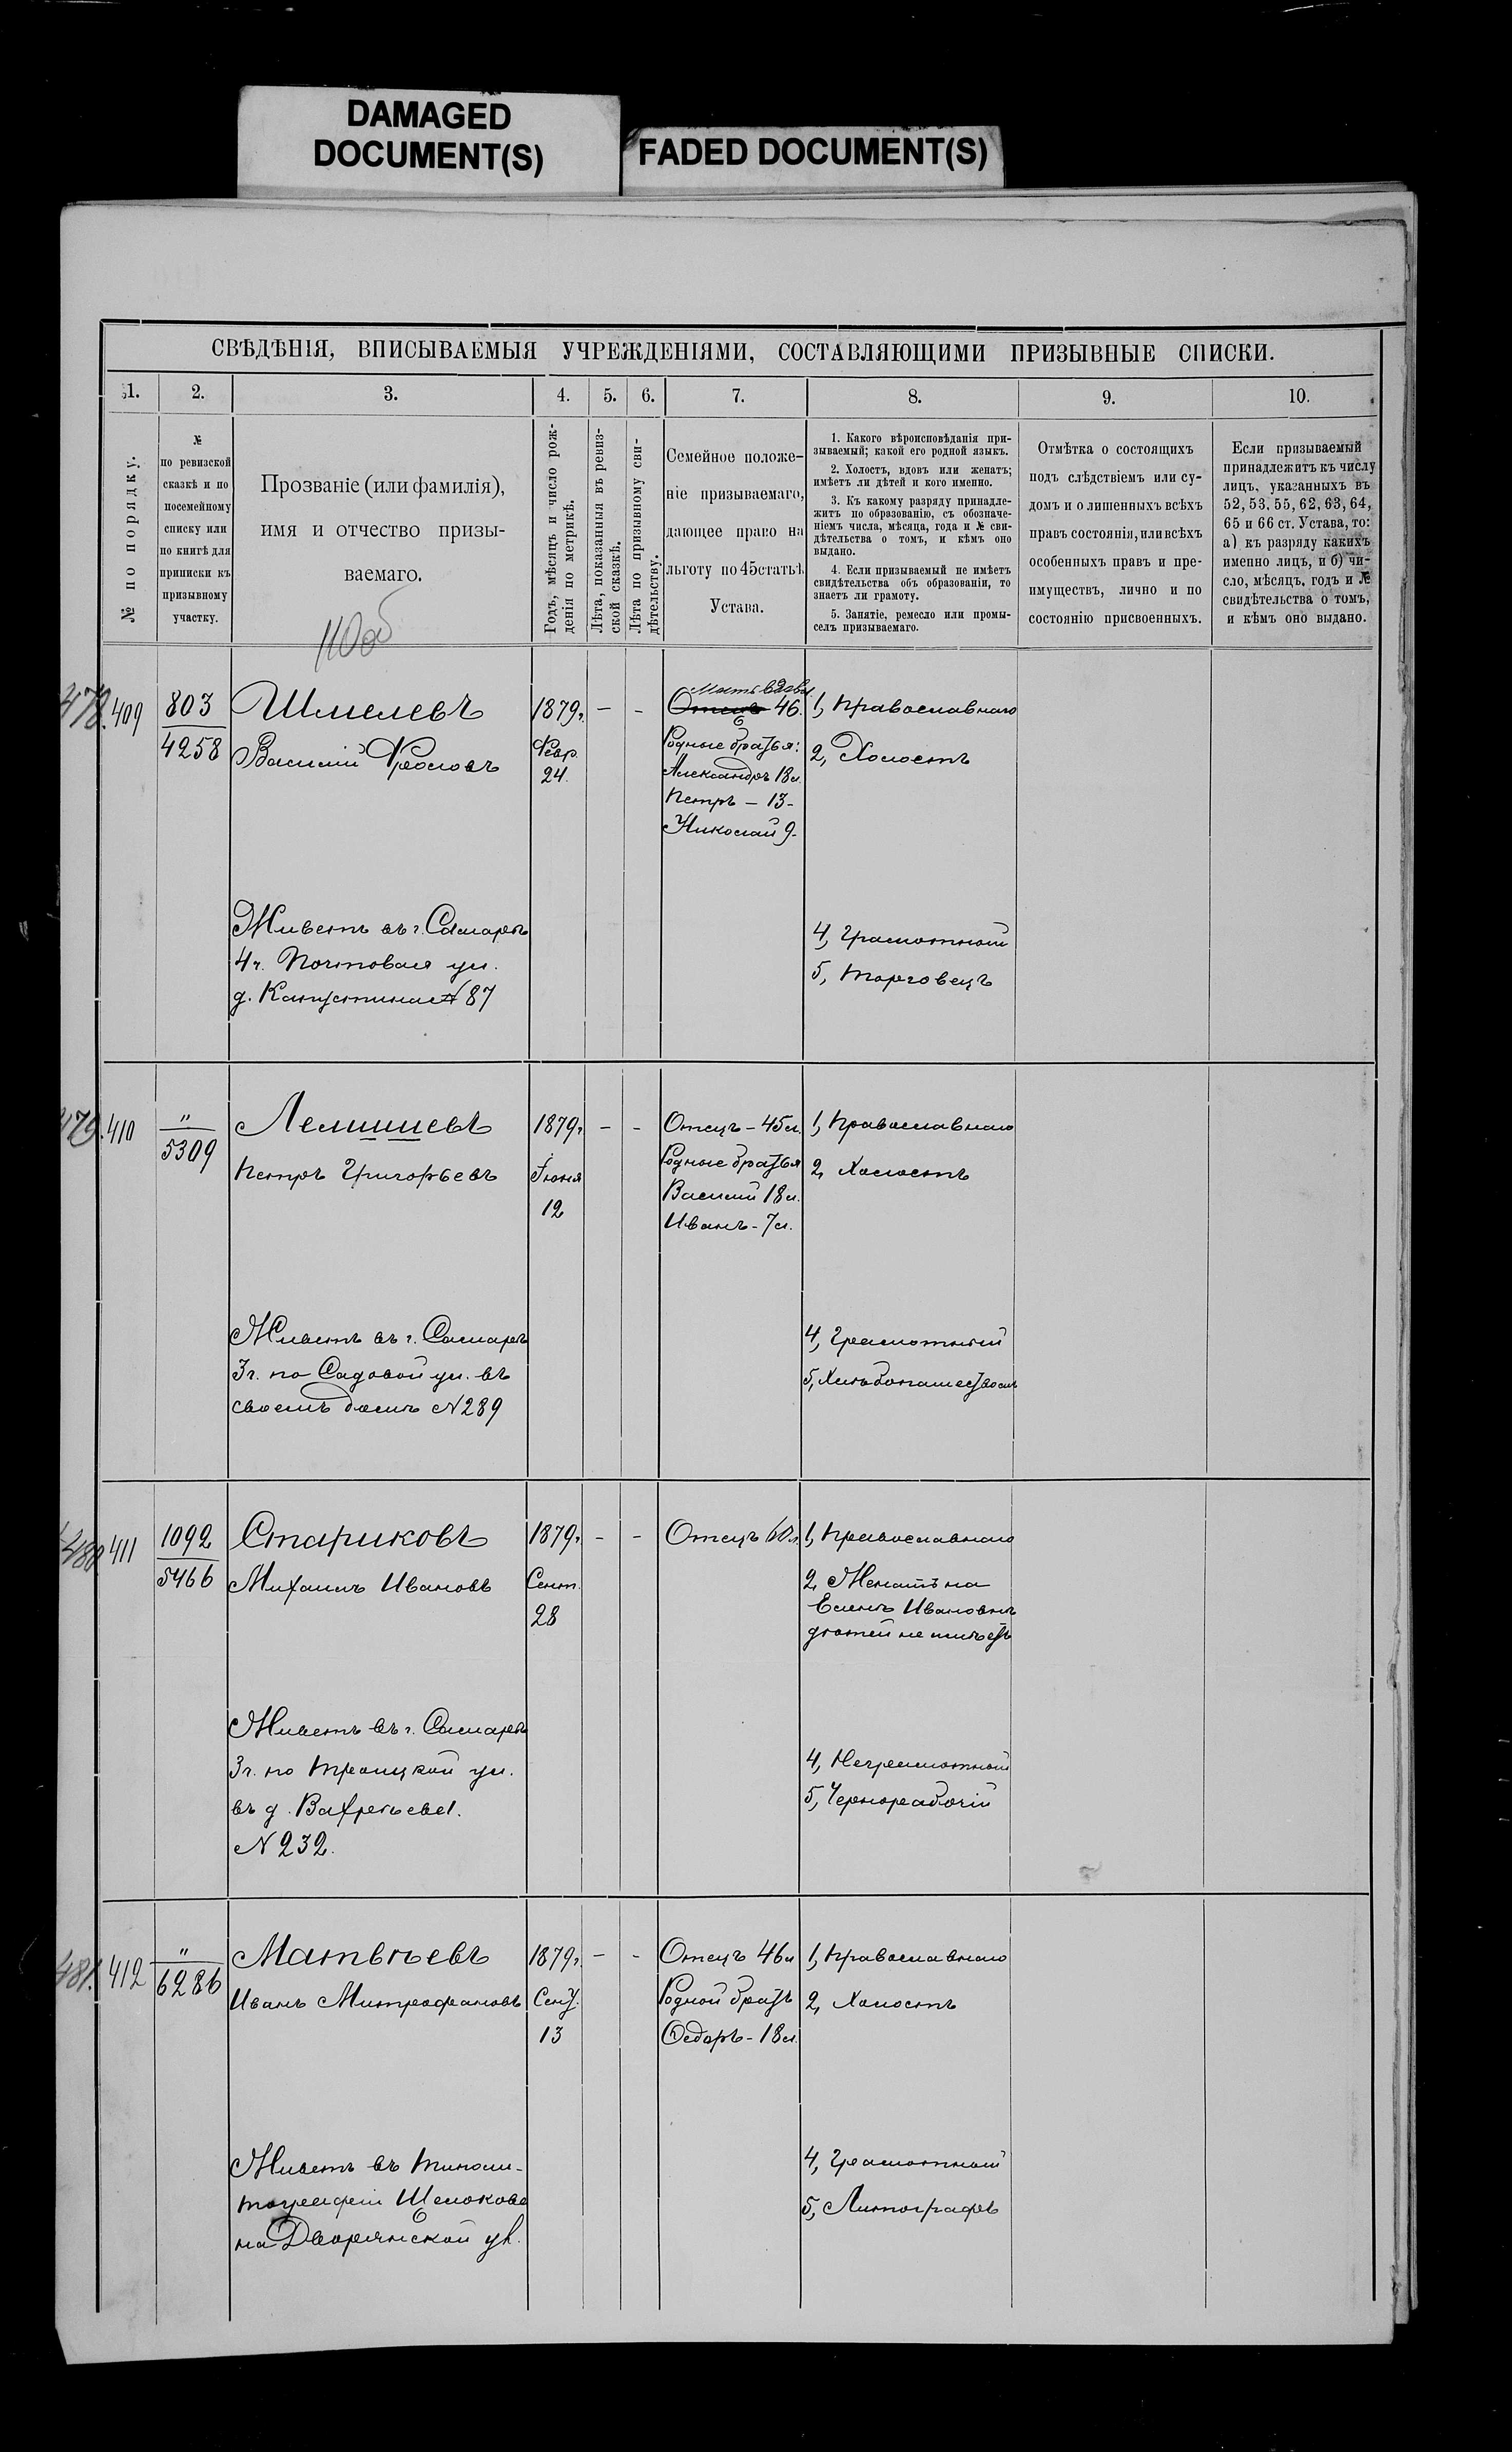 DAMAGED
DOCUMENT(S)
FADED DOCUMENT(S)
СВѢДѢНІЯ, ВПИСЫВАЕМЫЯ УЧРЕЖДЕНІЯМИ, СОСТАВЛЯЮЩИМИ ПРИЗЫВНЫЕ СПИСКИ.
1. 2. 3. 4. 5. 6. 7. 8. 9. 10.
№ по порядку.
№
по ревизской
сказкѣ и по
посемейному
списку или
по книгѣ для
приписки къ
призывному
участку.
Прозваніе (или фамилія),
имя и отчество призы-
ваемаго.
110об
Годъ, мѣсяцъ и число рож-
денія по метрикѣ.
Лѣта, показанныя въ ревиз-
ской сказкѣ.
Лѣта по призывному сви-
дѣтельству.
Семейное положе-
ніе призываемаго,
дающее право на
льготу по 45 статьѣ
Устава.
1. Какого вѣроисповѣданія при-
зываемый; какой его родной языкъ.
2. Холостъ, вдовъ или женатъ;
имѣетъ ли дѣтей и кого именно.
3. Къ какому разряду принадле-
житъ по образованію, съ обозначе-
ніемъ числа, мѣсяца, года и № сви-
дѣтельства о томъ, и кѣмъ оно
выдано.
4. Если призываемый не имѣетъ
свидѣтельства объ образованіи, то
знаетъ ли грамоту.
5. Занятіе, ремесло или промы-
селъ призываемаго.
Отмѣтка о состоящихъ
подъ слѣдствіемъ или су-
домъ и о лишенныхъ всѣхъ
правъ состоянія, или всѣхъ
особенныхъ правъ и пре-
имуществъ, лично и по
состоянію присвоенныхъ.
Если призываемый
принадлежитъ къ числу
лицъ, указанныхъ въ
52, 53, 55, 62, 63, 64,
65 и 66 ст. Устава, то:
а) къ разряду какихъ
именно лицъ, и б) чи-
сло, мѣсяцъ, годъ и №
свидѣтельства о томъ,
и кѣмъ оно выдано.
478. 409
803
4258
Шмелевъ
Василій Фроловъ
1879г.
Февр.
24.
—
-
Мать вдова
Отецъ 46.
Родные братья:
Александръ 18л.
Петръ — 13-
Николай 9-
1, Православнаго
2, Холостъ
Живетъ въ г. Самарѣ
4ч. Почтовая ул.
д. Капустина № 87
4, Грамотный
5, Торговецъ
479. 410
"
5309
Лемишевъ
Петръ Григорьевъ
1879г.
Іюня
12
-
-
Отецъ - 45л.
Родные братья
Василій 18л.
Иванъ - 7л.
1, Православнаго
2, Холостъ
Живетъ въ г. Самарѣ
3ч. по Садовой ул. въ
своемъ домѣ № 289
4, Грамотный
5, Хлѣбопашествомъ
480. 411
1092
5466
Стариковъ
Михаилъ Ивановъ
1879г.
Сент.
28
-
-
Отецъ 60л.
1, Православнаго
2, Женатъ на
Еленѣ Ивановнѣ
дѣтей не имѣетъ
Живетъ въ г. Самарѣ
3ч. по Троицкой ул.
въ д. Вахрѣева.
№ 232.
4, Неграмотный
5, Чернорабочій
481. 412
"
6286
Матвѣевъ
Иванъ Митрофановъ
1879г.
Сент.
13
—
-
Отецъ 46л
Родной братъ
Ѳедоръ - 18л.
1, Православнаго
2, Холостъ
Живетъ въ типоли-
тографіи Щелокова
на Дворянской ул.
4, Грамотный
5, Литографъ